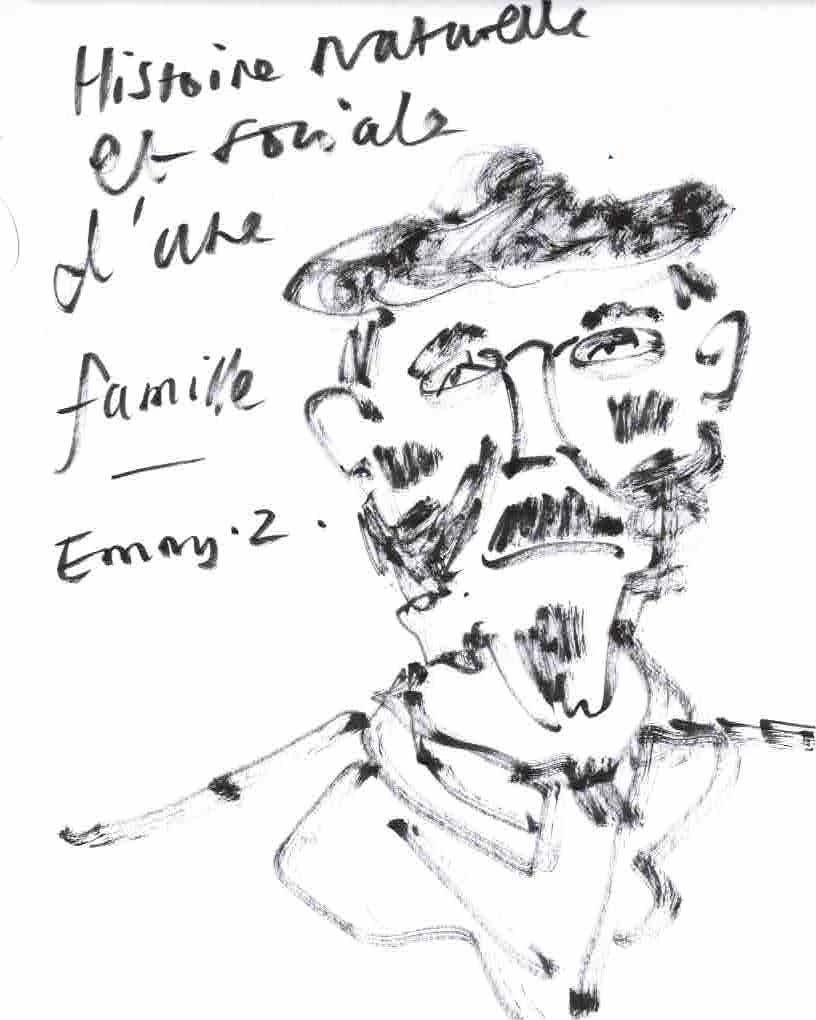 Histoire Naturelle
et sociale
d'une
famille
Emmy.Z.